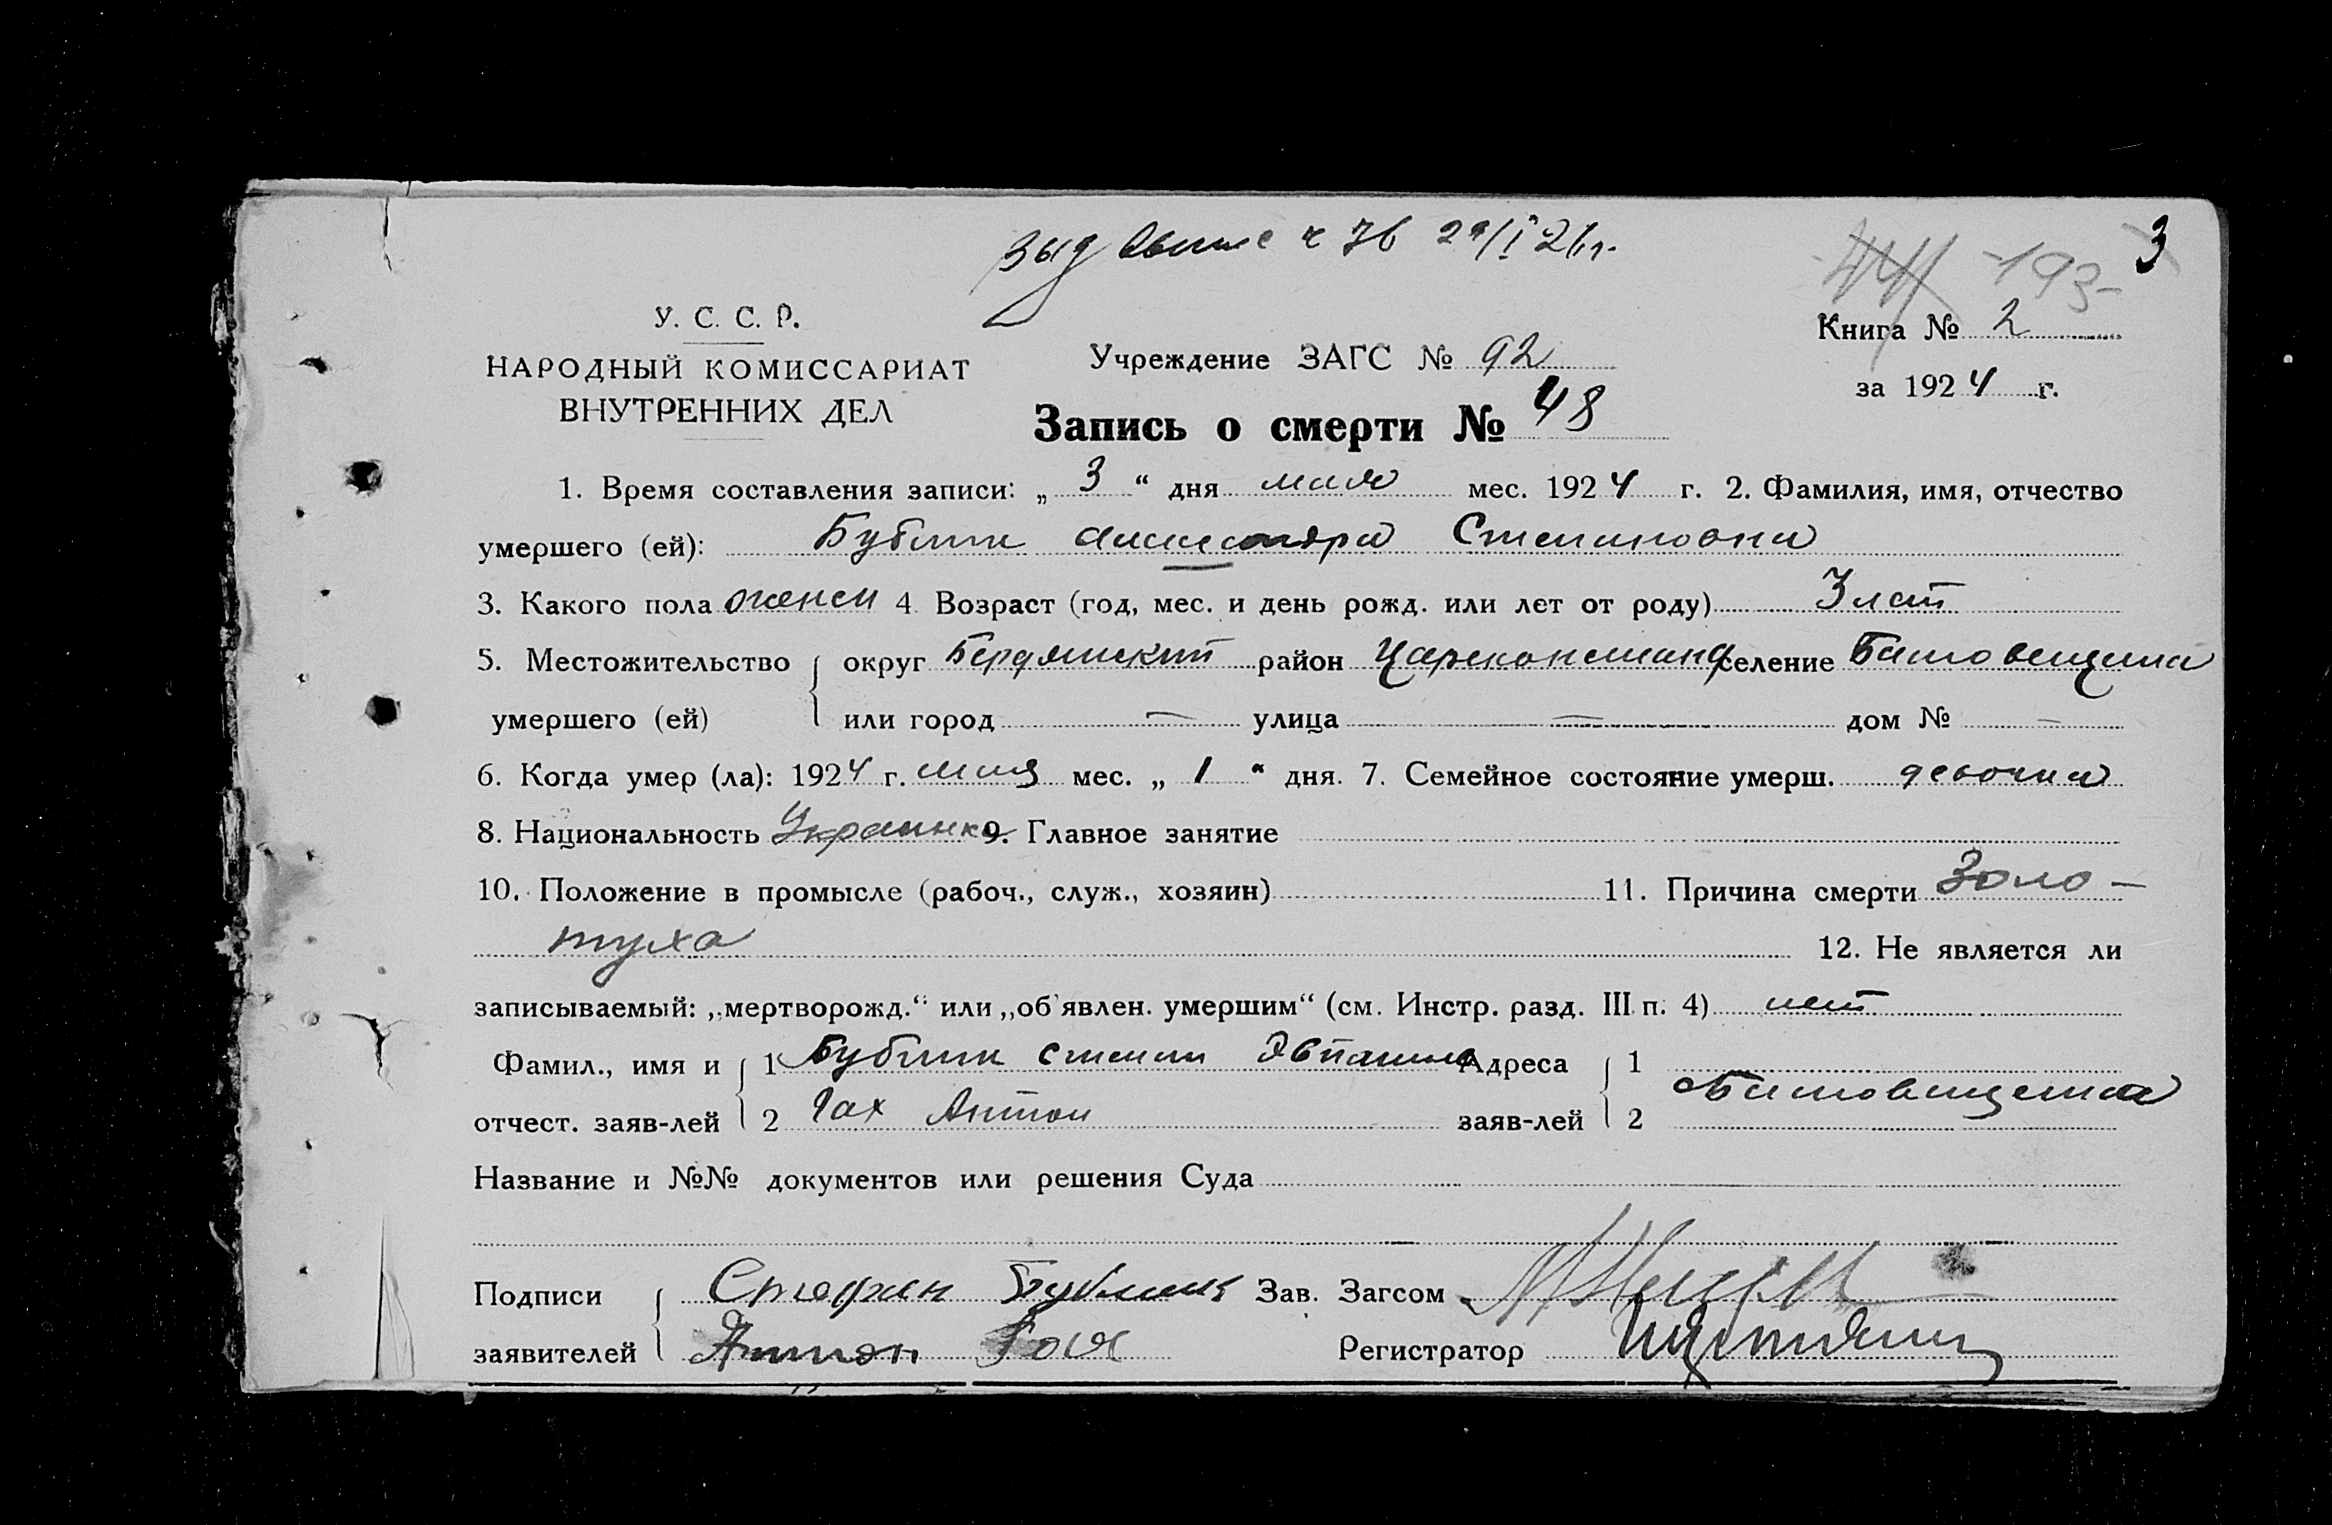 3
193
У. С. С. Р.
НАРОДНЫЙ КОМИССАРИАТ
ВНУТРЕННИХ ДЕЛ
Учреждение ЗАГС № 92
Книга № 2
за 1924 г.
Запись о смерти № 48
1. Время составления записи: „ 3 “ дня мая мес. 1924 г. 2. Фамилия, имя, отчество
умершего (ей): Бублик Александра Степановна
3. Какого пола женск 4 Возраст (год, мес. и день рожд. или лет от роду) 3 лет
5. Местожительство округ Бердянский район Цареконстант селение
умершего (ей) или город — улица — дом № —
6. Когда умер (ла): 1924 г. мая мес. „ 1 “ дня. 7. Семейное состояние умерш. девочка
8. Национальность Украинка 9. Главное занятие
10. Положение в промысле (рабоч., служ., хозяин) 11. Причина смерти Золо-
туха 12. Не является ли
записываемый: „мертворожд.“ или „об'явлен. умершим“ (см. Инстр. разд. III п. 4) нет
Фамил., имя и 1 Бублик Степан Адреса 1
отчест. заяв-лей 2 Гах Антон заяв-лей 2
Название и №№ документов или решения Суда
Подписи Стефан Бублик Зав. Загсом
заявителей Антон Регистратор